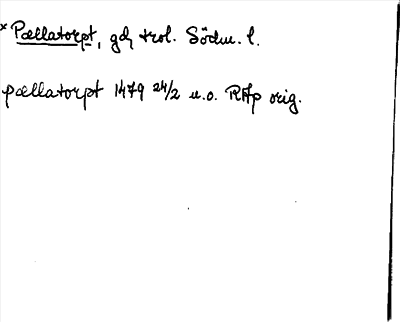 * Pællatorpt, gd, trol. Södm. l.
pællatorpt 1479 24/2 u.o. RAp orig.